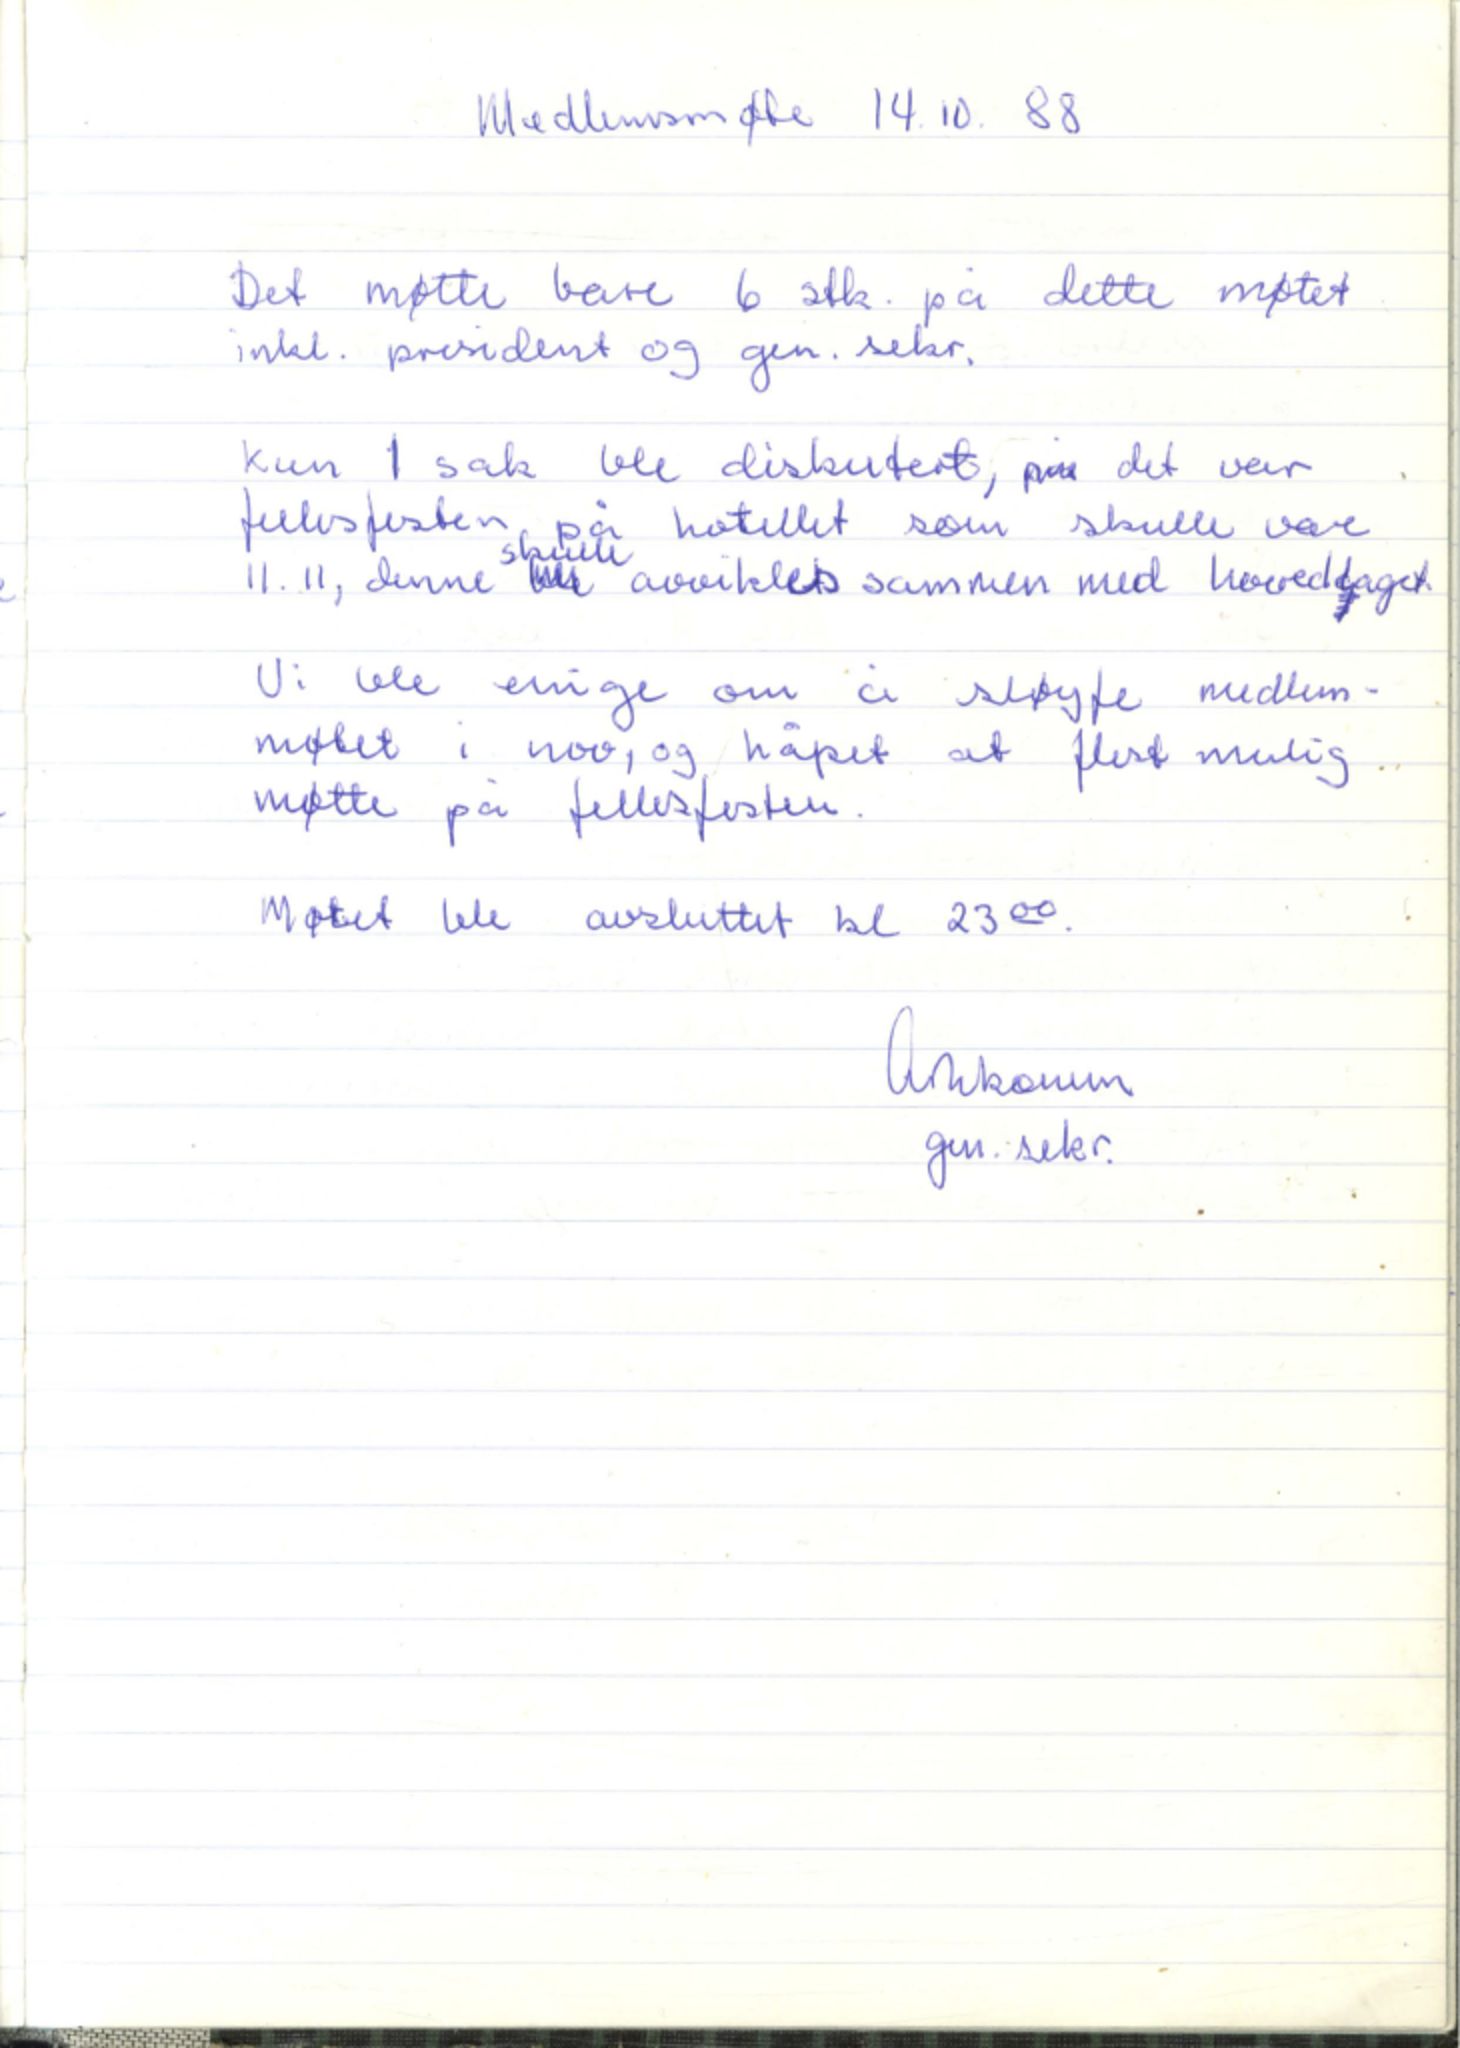 Medlemsmøte 14.10. 88
Det møtte bare 6 stk. på dette møtet
inkl. president og gen. sekr.
Kun 1 sak ble diskutert, det var
fellesfesten på hotellet som skulle være
11.11, denne skulle avvikles sammen med hovedlaget.
Vi ble enige om å sløyfe medlem-
møtet i nov, og håpet at flest mulig
møtte på fellesfesten.
Møtet ble avsluttet kl 23 00.
gen. sekr.